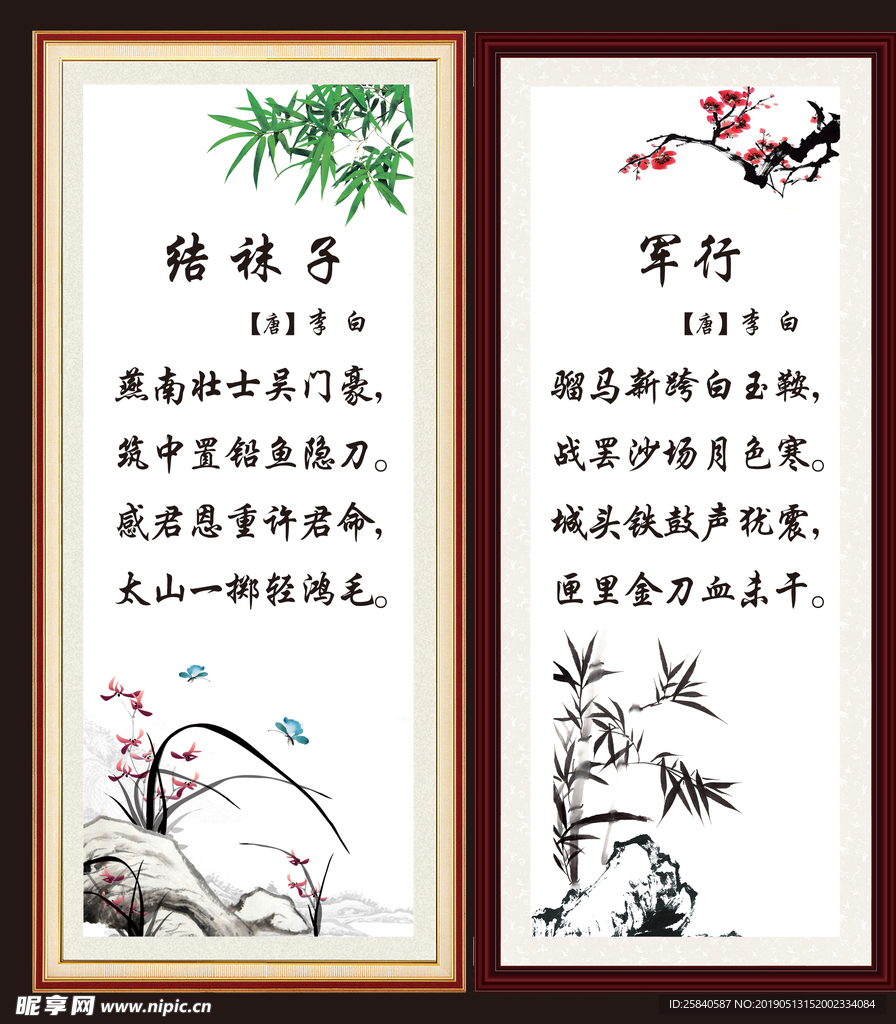 结袜子
【唐】李白
燕南壮士吴门豪，
筑中置铅鱼隐刀。
感君恩重许君命，
太山一掷轻鸿毛。
军行
【唐】李白
骝马新跨白玉鞍，
战罢沙场月色寒。
城头铁鼓声犹震，
匣里金刀血未干。
昵享网 www.nipic.cn
ID:25840587 NO:20190513152002334084